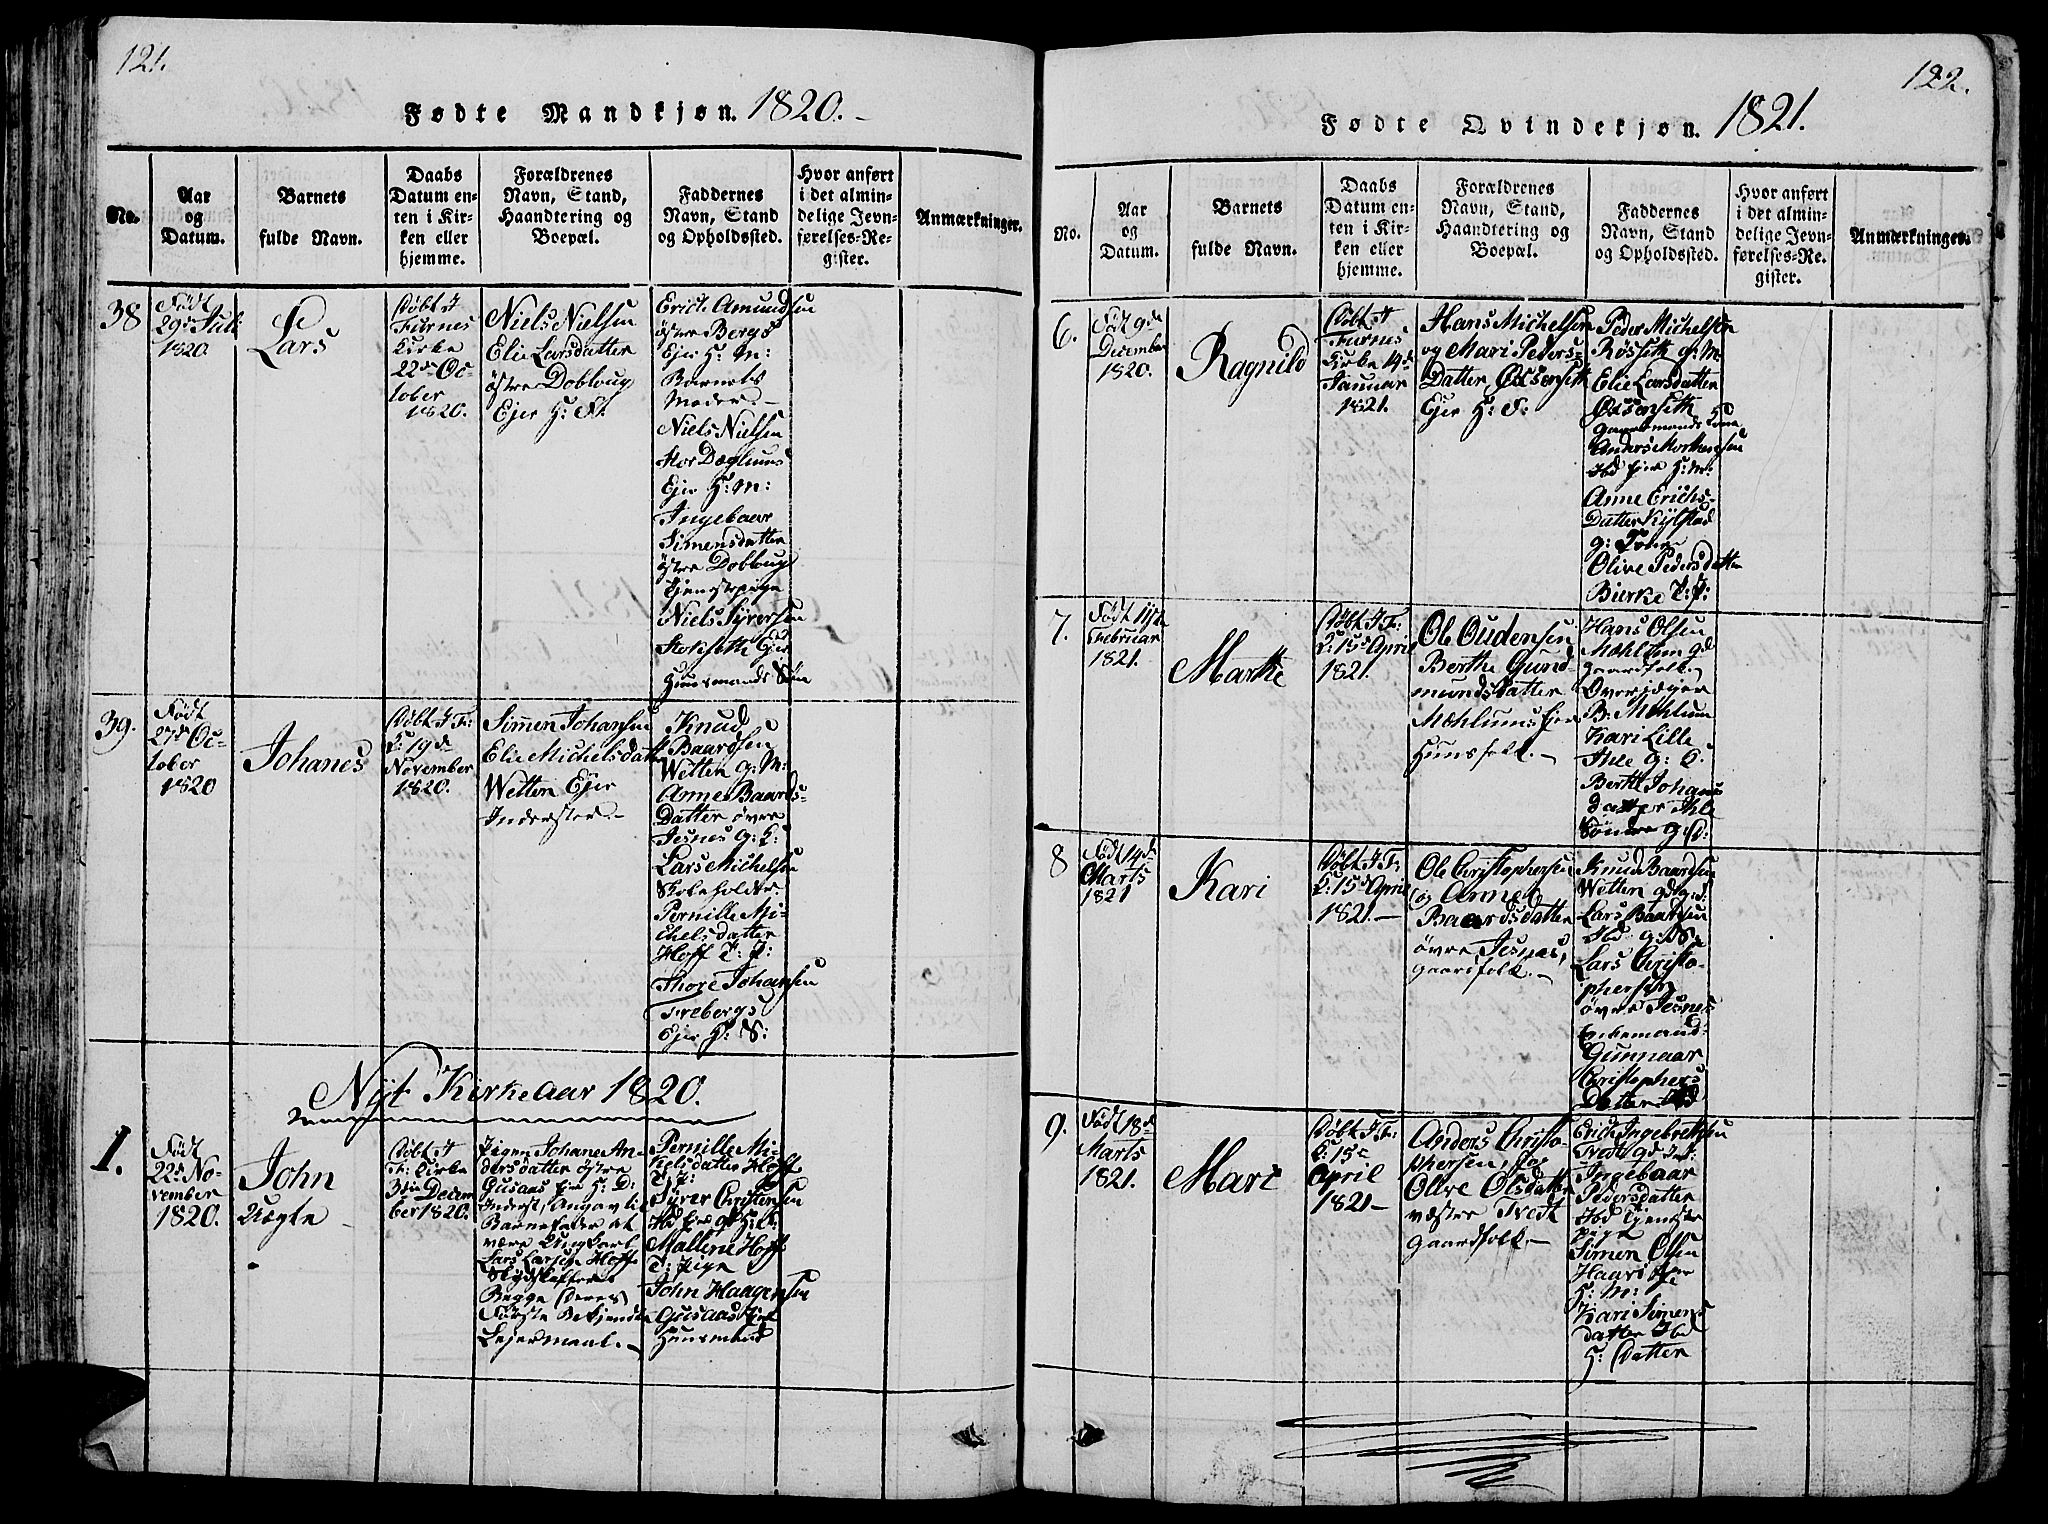 121.
Fødte Mandkjøn. 1820.-
No.
Aar
og
Datum.
Barnets
fulde Navn.
Daabs
Datum en-
ten i Kir-
ken eller
hjemme.
Forældrenes
Navn, Stand,
Haandtering og
Boepæl.
Faddernes
Navn, Stand
og Opholdssted.
Hvor anført
i det almin-
delige Jevn-
førelses-Re-
gister.
Anmærkninger.
38
Født
29de Juli
1820.
Lars
Døbt I
Furnes
Kirke
22de Oc-
tober
1820.
Niels Nielsen
Elie Larsdatter
östre Dobloug
Ejer H: F.
Erich Amundsen
östre Bergs
Ejer H: M:
Barnets
Moder.-
Niels Nielsen
Stor Dæglums
Ejer H: M:
Ingebaar
Simensdatter
östre Dobloug
Tjenstepige
Niels Syversen
Stokseth Ejer
Huusmands Søn
39.
Født
27de Oc-
tober
1820
Johanes
Døbt I F:
K: 19de
November
1820.
Simen Johansen
Elie Michelsdatter
Wetten Ejer
Inderster.-
Knud
Baardsen
Wetten g: M:
Anne Baards-
Datter övre
Jesnes g: K:
Lars Michelsen
Skoleholder
Pernille Mi-
chelsdatter
Hoff T: P:
Thore Johansen
Freberg
Ejer H: S:
Nÿt Kirkeaar 1820.
1.
Født
22de No-
vember
1820.
John
Uægte
Døbt I
F: Kirke
3die Decem
ber 1820.
Pigen Johane An-
dersdatter östre
Gusaas Ejer H: D:
Inderst, Angav til
Barnefader at
være Ungkarl
Lars Larsen Hoff
Begge Deres
Første Bekjendte
Lejermaal.-
Pernille Mi-
chelsdatter Hoff
T: P:
Syver Christensen
Mallene Hoff
T: Pige
John Haagensen
Gusaas Ejer
Huusmand
122.
Fødte Qvindekjøn. 1821.
No.
Aar
og
Datum.
Barnets
fulde Navn.
Daabs
Datum en-
ten i Kir-
ken eller
hjemme.
Forældrenes
Navn, Stand,
Haandtering og
Boepæl.
Faddernes
Navn, Stand
og Opholdssted.
Hvor anført
i det almin-
delige Jevn-
førelses-Re-
gister.
Anmærkninger.
6.
Født 9de
December
1820.
Ragnild
Døbt I
Furnes
Kirke 14de
Januar
1821.
Hans Michelsen
og Mari Peders-
Datter,
Ejer H: F:
Peder Michelsen
Røsseth g: M
Elie Larsdatter
Gaardmands Kone
Anders Mortensen
Ibd Ejer H: M:
Anne Erichs-
Datter Kylstad
g: Kone
Olive Pedersdatter
Bierke T: P:
7.
Født 11te
Februar
1821.
Marthe
Døbt I F:
K: 15de April
1821.
Ole Oudensen
Berthe Gund-
mundsdatter
Mæhlums Ejer
Huusfolk.-
Hans Olsen
Mæhlum gd
Gaardfolk.
Overjæger
B: Mæhlum
Kari Lille
Ihle g: K.
Berthe Johanes
Datter Ihle
Søndre g: D:
8
Født 14de
Marts
1821
Kari
Døbt I F:
K: 15de April
1821.-
Ole Christophersen
og Anne
Baardsdatter
övre Jesnes,
Gaardfolk.-
Knud Baardsen
Wetten
Lars Baardsen
Ibd g: S:
Lars Christo-
phersen
övre Jesnes
Enkemand
Gunnaar
Christophers
Datter Ibd
9.
Født 18de
Marts
1821.
Mari
Døbt I F:
K: 15de
April
1821-
Anders Christo-
phersen, og
Olive Olsdatter
væstre Tvedt
Gaardfolk.-
Erich Ingebretsen
Tvedt
Ingebaar
Pedersdatter
Ibd Tjenste
pige
Simen Olsen
Haari Ejer
H: M:
Kari Simens
datter Ibd
H: Datter